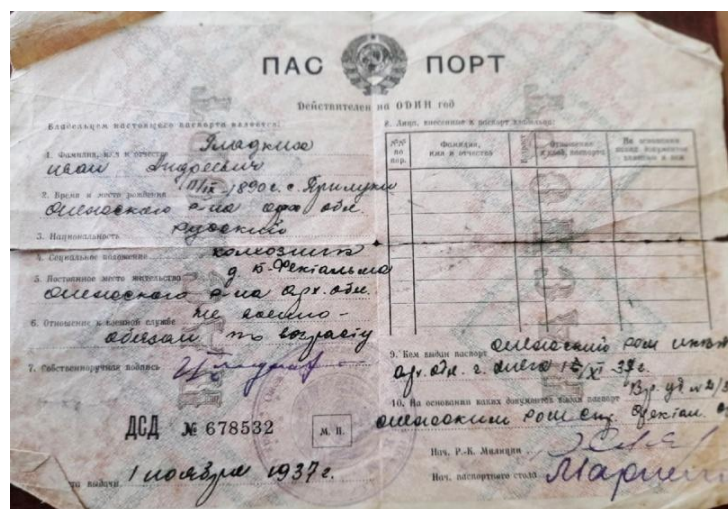 ПАСПОРТ
Действителен на ОДИН год
Владельцем настоящего паспорта является:
1. Фамилия, имя и отчество Гладких
Иван Андреевич
2. Время и место рождения 1890 г. с. Прилуки
Онежского р-на арх. обл.
3. Национальность русский
4. Социальное положение колхозник
5. Постоянное место жительство д. б-Фехтальма
Онежского р-на арх. обл.
6. Отношение к военной службе не военно-
обязан по возрасту
7. Собственноручная подпись
ДСД № 678532
М. П.
та выдачи. 1 ноября 1937 г.
8. Лица, внесенные в паспорт владельца:
№№ по пор.
Фамилия, имя и отчество
Возраст
Отношение к влад. паспорта
На основании каких документов
9. Кем выдан паспорт Онежский ром
арх. обл. г. Онега 37 г.
10. На основании каких документов выдан паспорт
Онежским ром
Нач. Р.-К. Милиции
Нач. паспортного стола